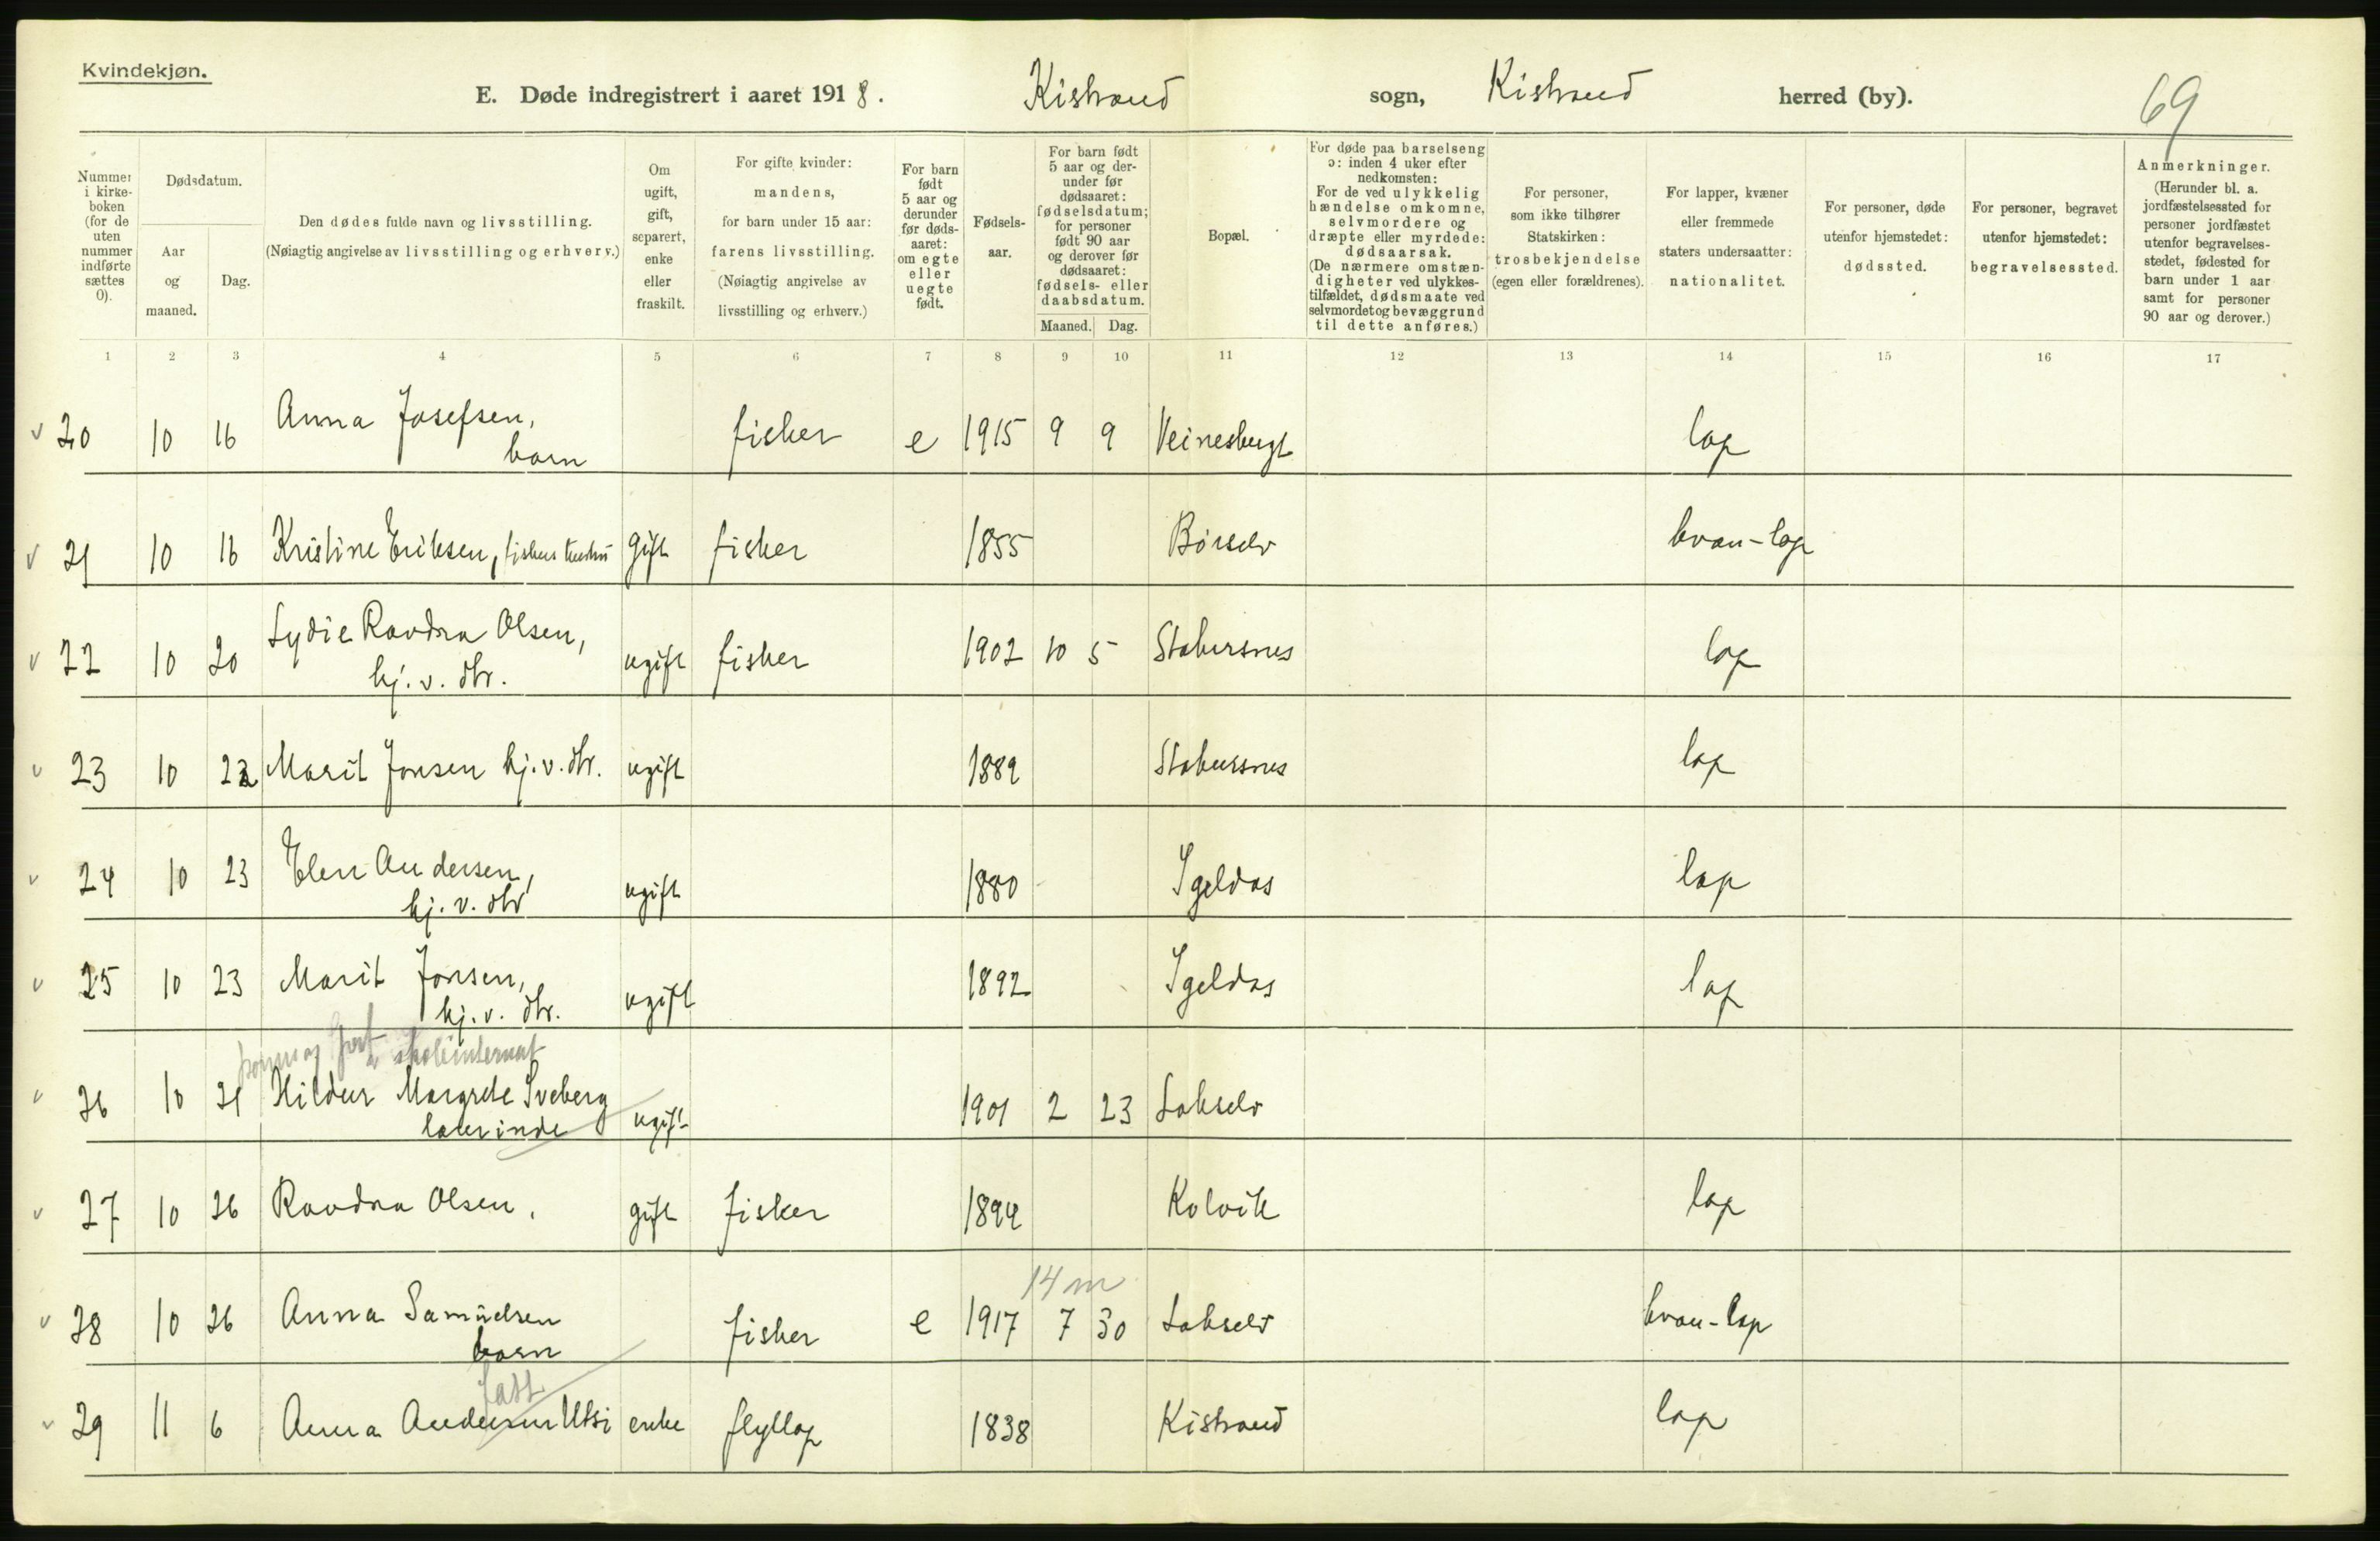 Kvindekjøn.
E. Døde indregistrert i aaret 1918. Kistrand sogn, Kistrand herred (by).
69
Nummer i kirkeboken (for de uten nummer indførte sættes 0).
Dødsdatum.
Aar og maaned.
Dag.
Den dødes fulde navn og livsstilling.
(Nøiagtig angivelse av livsstilling og erhverv.)
Om ugift, gift, separert, enke eller fraskilt.
For gifte kvinder: mandens, for barn under 15 aar: farens livsstilling.
(Nøiagtig angivelse av livsstilling og erhverv.)
For barn født 5 aar og derunder før dødsaaret: om egte eller uegte født.
Fødselsaar.
For barn født 5 aar og derunder før dødsaaret: fødselsdatum; for personer født 90 aar og derover før dødsaaret: fødsels- eller daabsdatum.
Maaned. Dag.
Bopæl.
For døde paa barselseng ɔ: inden 4 uker efter nedkomsten:
For de ved ulykkelig hændelse omkomne, selvmordere og dræpte eller myrdede: dødsaarsak.
(De nærmere omstændigheter ved ulykkestilfældet, dødsmaate ved selvmordet og bevæggrund til dette anføres.)
For personer, som ikke tilhører Statskirken: trosbekjendelse (egen eller forældrenes).
For lapper, kvæner eller fremmede staters undersaatter: nationalitet.
For personer, døde utenfor hjemstedet: dødssted.
For personer, begravet utenfor hjemstedet: begravelsessted.
Anmerkninger.
(Herunder bl. a. jordfæstelsessted for personer jordfæstet utenfor begravelsesstedet, fødested for barn under 1 aar samt for personer 90 aar og derover.)
1 2 3 4 5 6 7 8 9 10 11 12 13 14 15 16 17
v 20 10 16 Anna Josefsen, fisker e 1915 9 9 Veinesbugt lap
barn
v 21 10 16 Kristine Eriksen, fiskers hustru gift fisker 1855 Børselv kvæn-lap
v 22 10 20 Lydie Ravdna Olsen, ugift fisker 1902 10 5 Stabursnes lap
hj. v. dtr.
v 23 10 22 Marit Jonsen hj. v. dtr. ugift 1889 Stabursnes lap
v 24 10 23 Elen Andersen, ugift 1880 Igeldas lap
hj. v. dtr
v 25 10 23 Marit Jonsen, ugift 1892 Igeldas lap
hj. v. dtr.
skoleinternat
v 26 10 21 Hildur Margrete Sveberg ugift 1901 2 23 Lakselv
lærerinde
v 27 10 26 Ravdna Olsen, gift fisker 1894 Kolvik lap
14 m
v 28 10 26 Anna Samuelsen fisker e 1917 7 30 Lakselv kvæn-lap
barn
fatt.
v 29 11 6 Anna Andersen Utsi enke flyttlap 1838 Kistrand lap